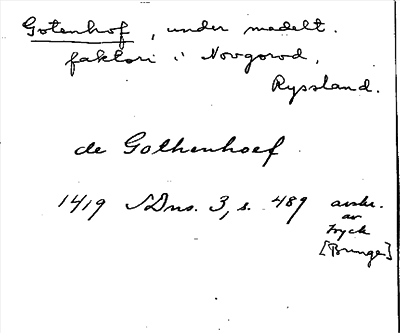 Gotenhof, under medelt.
faktori i Novgorod,
Ryssland.
de Gothenhoef
1419 SDns. 3, s. 489 avskr.
av
tryck
[Bunge]